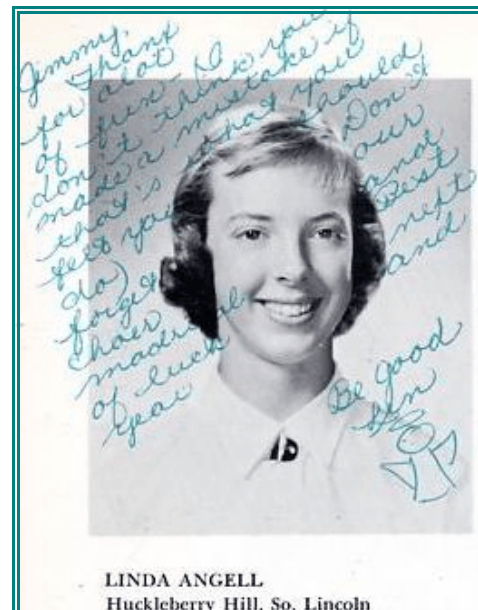 Jimmy,
Thanx
for alot
of fun - (I
don't think you
made a mistake if
that's what you
felt you should
do) Don't
forget our
choir and
madrigal Best
of luck next
year and
Be good
Lin
LINDA ANGELL
Huckleberry Hill, So. Lincoln